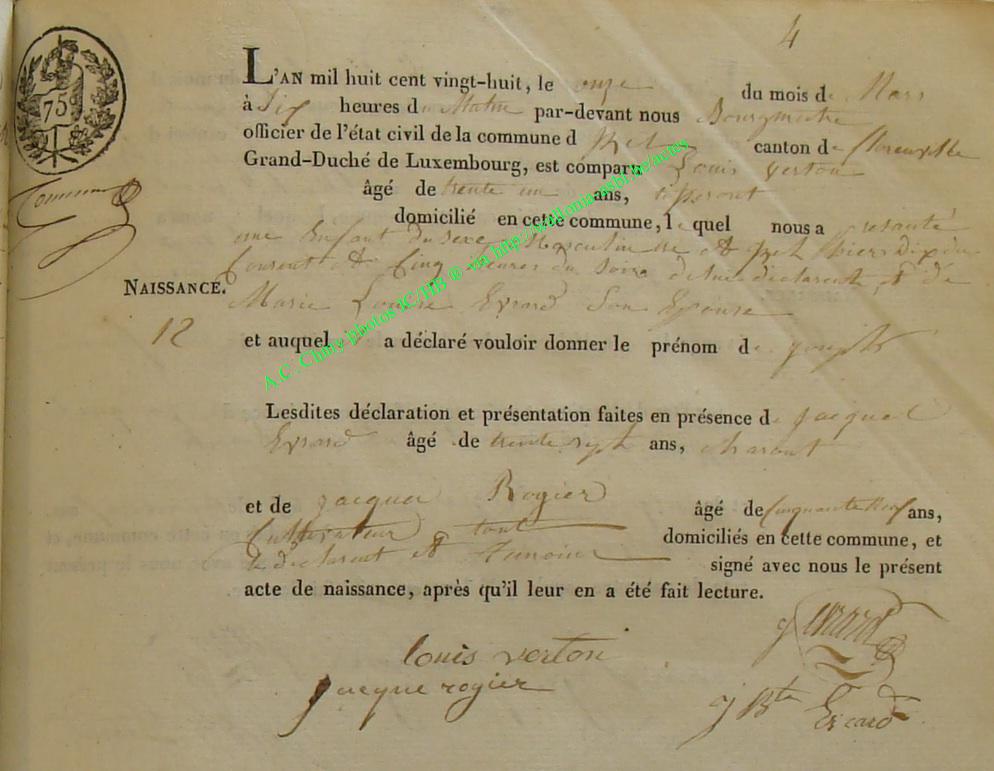 4
75
L'AN mil huit cent vingt-huit, le onze du mois de Mars
à Dix heures du Matin par-devant nous Bourgmestre
officier de l'état civil de la commune d canton de florenville
Grand-Duché de Luxembourg, est comparu Louis Verton
âgé de trente un ans, tisseront
domicilié en cette commune, lequel nous a présenté
une Enfant du sexe Masculin né hier dix du
Courent Cinq heures du Soire de lui declarent, & de
NAISSANCE. Marie Louise Evrard Son Epouse
12
et auquel il a déclaré vouloir donner le prénom de joseph
Lesdites déclaration et présentation faites en présence de jacque
Evrard âgé de trente sept ans, charont
et de jacque Rogier âgé de Cinquante neuf ans,
Cultivateur tout domiciliés en cette commune, et
le declarent et Temoins signé avec nous le présent
acte de naissance, après qu'il leur en a été fait lecture.
g Evrard
louis verton
jacque rogier
j Bte Evrard
A.C. Chiny photos IC/HB ® via http://wallonia.asbl.be/actes